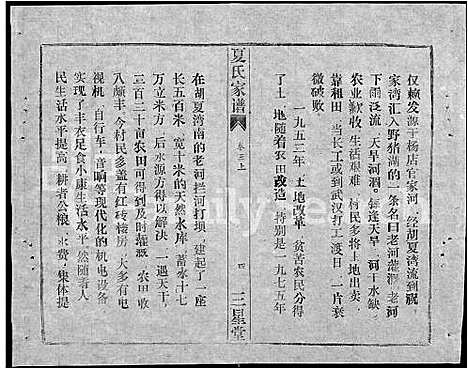 仅赖发源于杨店官家河、经胡夏湾流到祝
家湾汇入野猪湖的一条名曰老河灌溉。老河
下涸泛流，天旱河涸。每逢天旱、河干水缺、
农业歉收、生活艰难，村民多将土地出卖，
靠租田、当长工或到武汉打工渡日，一片衰
微破败。
一九五二年，土地改革，贫苦农民分得
了土地。随着农田改造，特别是一九七五年
夏氏家谱
卷三上
四
三星堂
在胡夏湾南的老河拦河打坝，建起了一座
长五百米，宽十米的天然水库，蓄水十七
万立米方，后水源方得以解决，一遇天干，
三百二十亩农田可得到及时灌溉，农田收
入颇丰。今村民多盖有红砖楼房，大多有电
视机、自行车、音响等现代化的机电设备，
实现了丰衣足食小康生活水平。然随着人
民生活水平提高，耕者公粮、水费、集体提